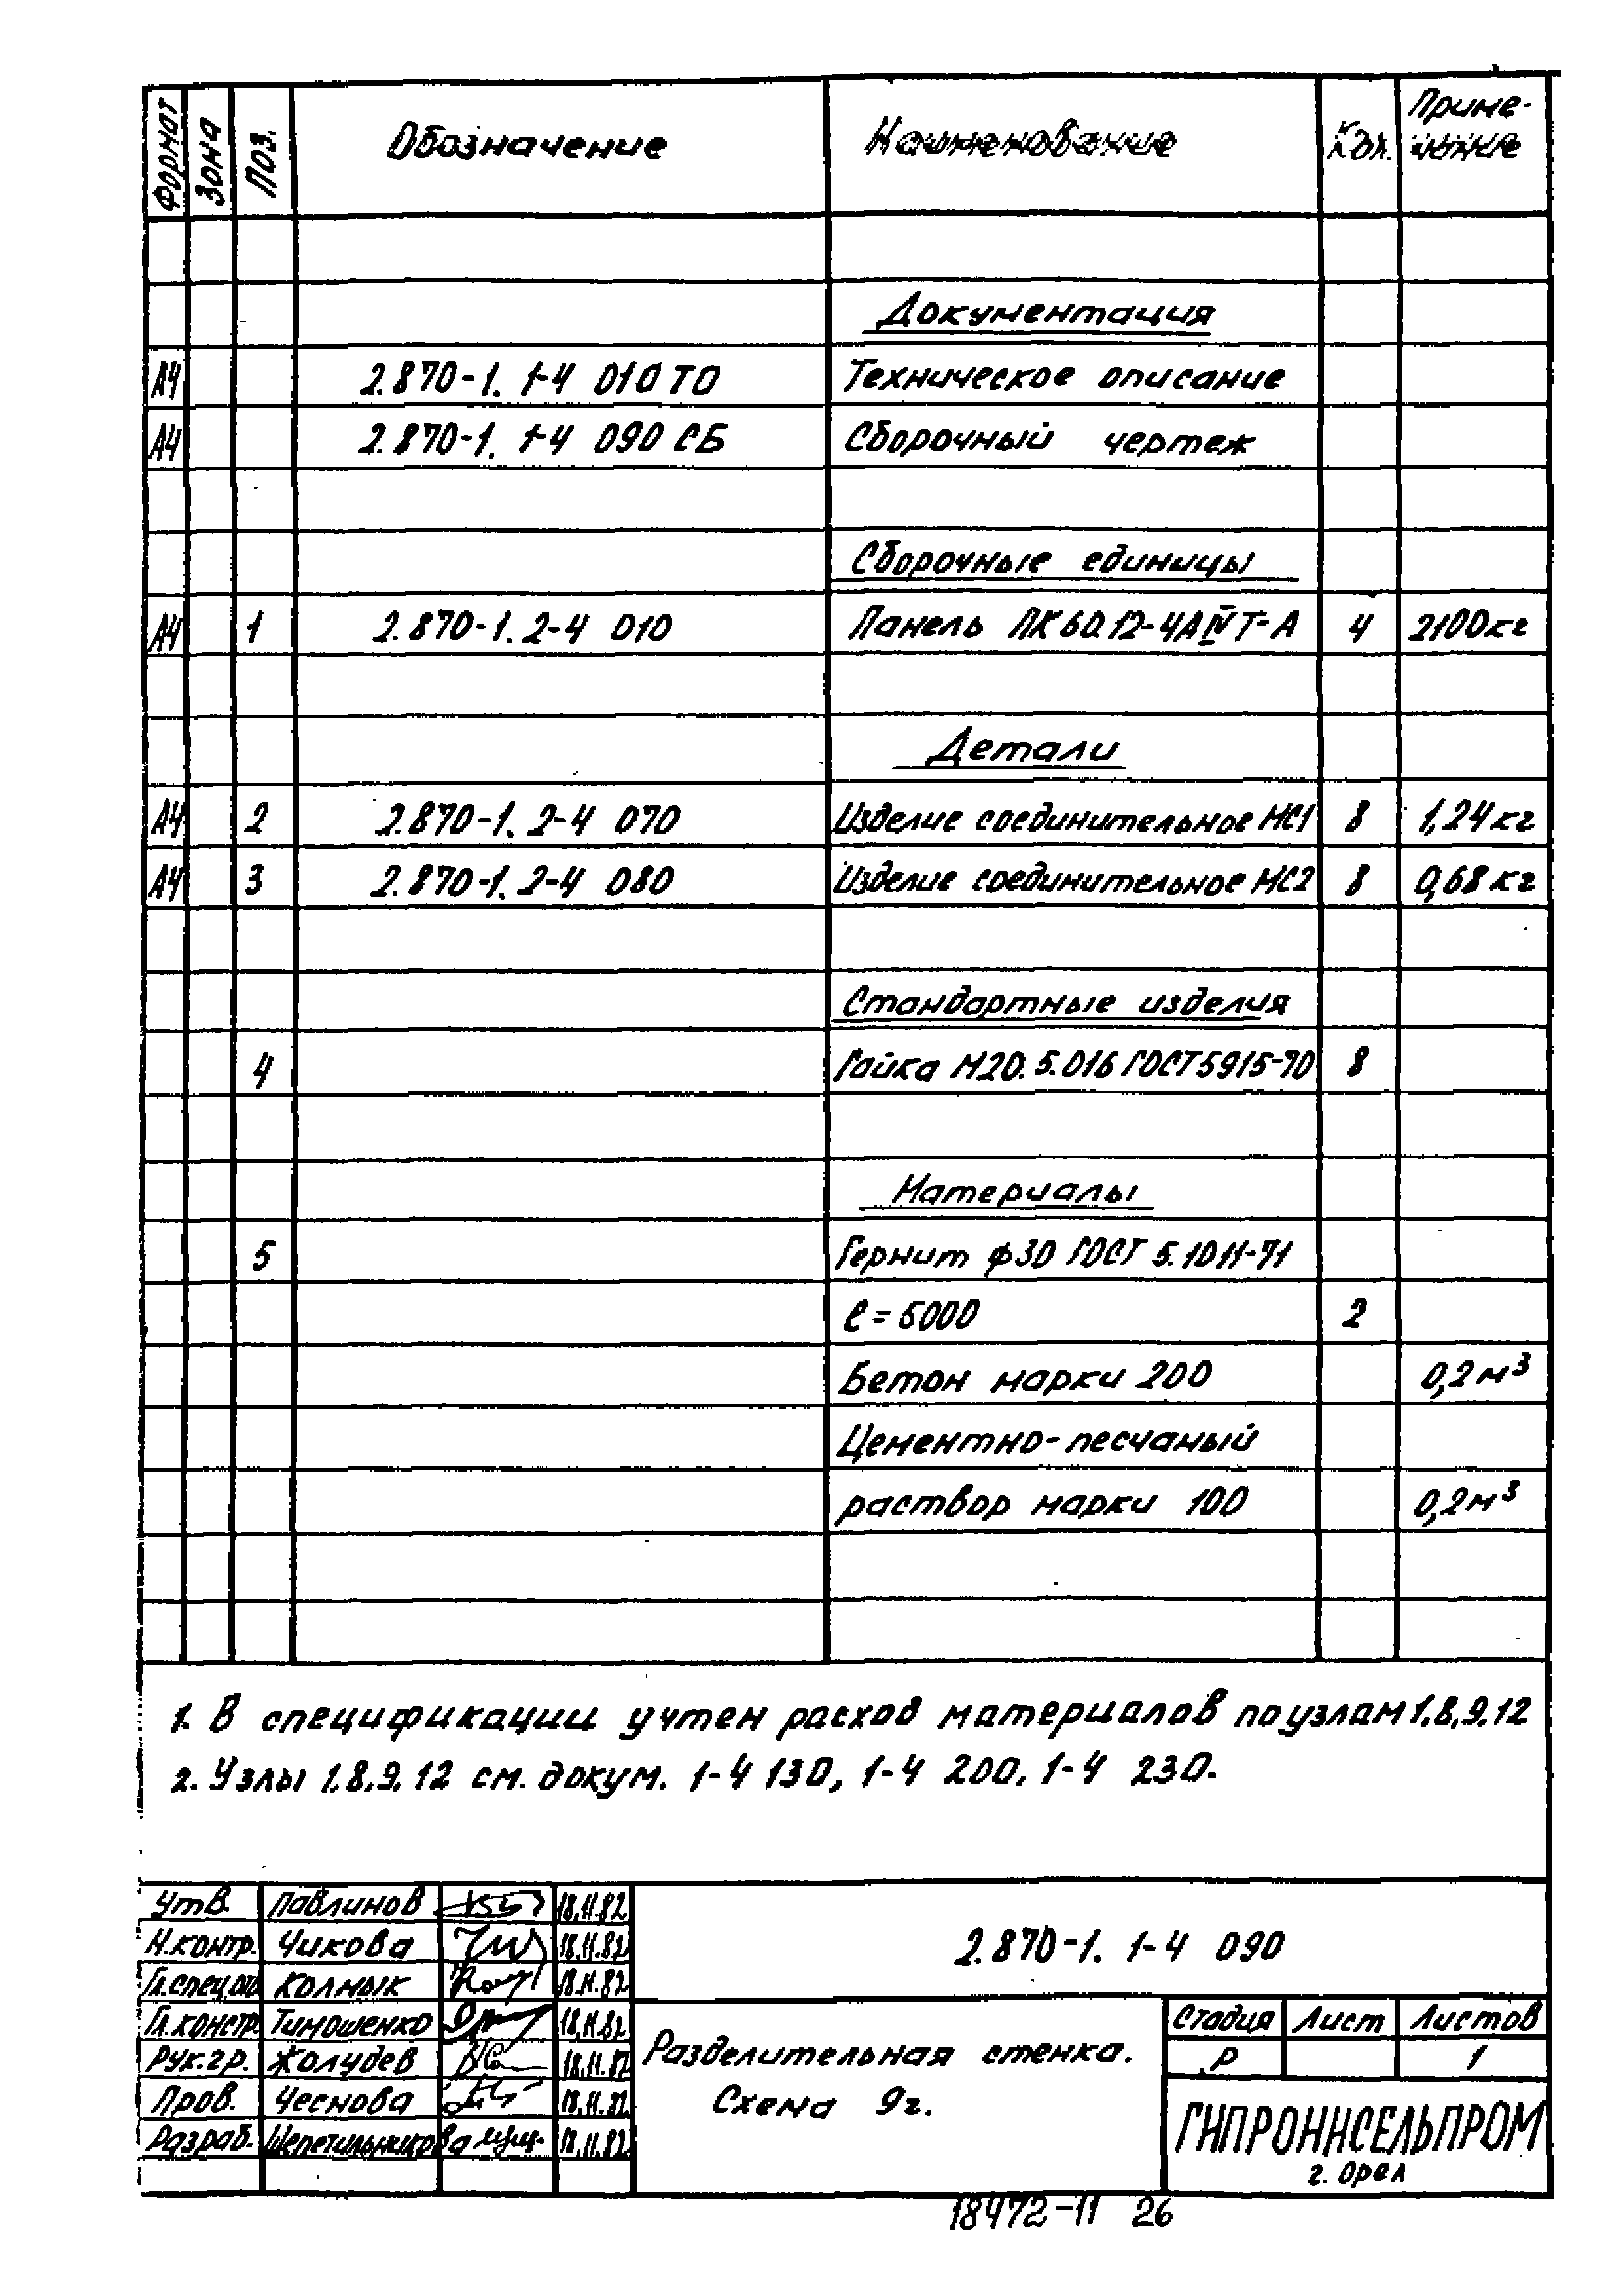 Формат Зона Поз. Обозначение Наименование Кол. Приме-
чание
Документация
А4 2.870-1. 1-4 010 ТО Техническое описание
А4 2.870-1. 1-4 090 СБ Сборочный чертеж
Сборочные единицы
А4 1 2.870-1. 2-4 010 Панель ПК 60.12-4АIVТ-А 4 2100кг
Детали
А4 2 2.870-1. 2-4 070 Изделие соединительное МС1 8 1,24кг
А4 3 2.870-1. 2-4 080 Изделие соединительное МС2 8 0,68кг
Стандартные изделия
4 Гайка М20.5.016 ГОСТ 5915-70 8
Материалы
5 Гернит ф30 ГОСТ 5.1011-71
ℓ = 6000 2
Бетон марки 200 0,2 м³
Цементно-песчаный
раствор марки 100 0,2м³
1. В спецификации учтен расход материалов по узлам 1,8,9,12
2. Узлы 1,8,9,12 см. докум. 1-4 130, 1-4 200, 1-4 230.
Утв. Павлинов 18.11.82
Н.контр. Чикова 18.11.82
Гл.спец.отд Колмык 18.11.82
Гл.констр. Тимошенко 18.11.82
Рук.гр. Жолудев 18.11.82
Пров. Чеснова 18.11.82
Разраб. Шепетильникова 18.11.82
2.870-1. 1-4 090
Разделительная стенка.
Схема 9г.
Стадия Лист Листов
Р 1
ГИПРОНИСЕЛЬПРОМ
г. Орел
18472-11 26